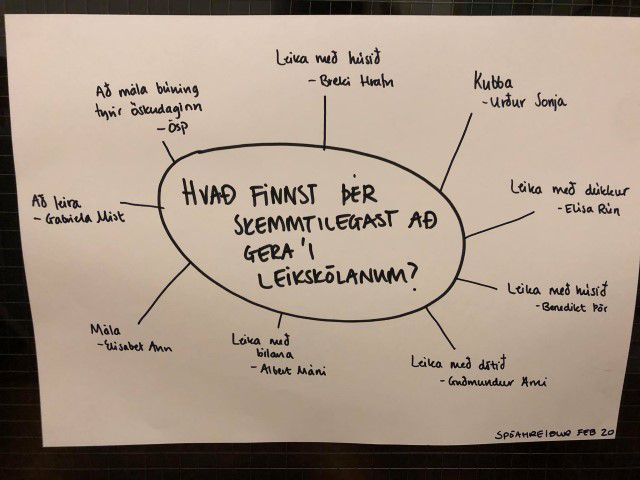 HVAÐ FINNST ÞÉR
SKEMMTILEGAST AÐ
GERA Í
LEIKSKÓLANUM?
Leika með húsið
- Breki Hrafn
Kubba
- Urður Sonja
Leika með dúkkur
- Elísa Rún
Leika með húsið
- Benedikt Þór
Leika með dótið
- Guðmundur Árni
Leika með
bílana
- Albert Máni
Mála
- Elísabet Ann
Að leira
- Gabríela Mist
Að mála búning
fyrir öskudaginn
- Ösp
FEB 20